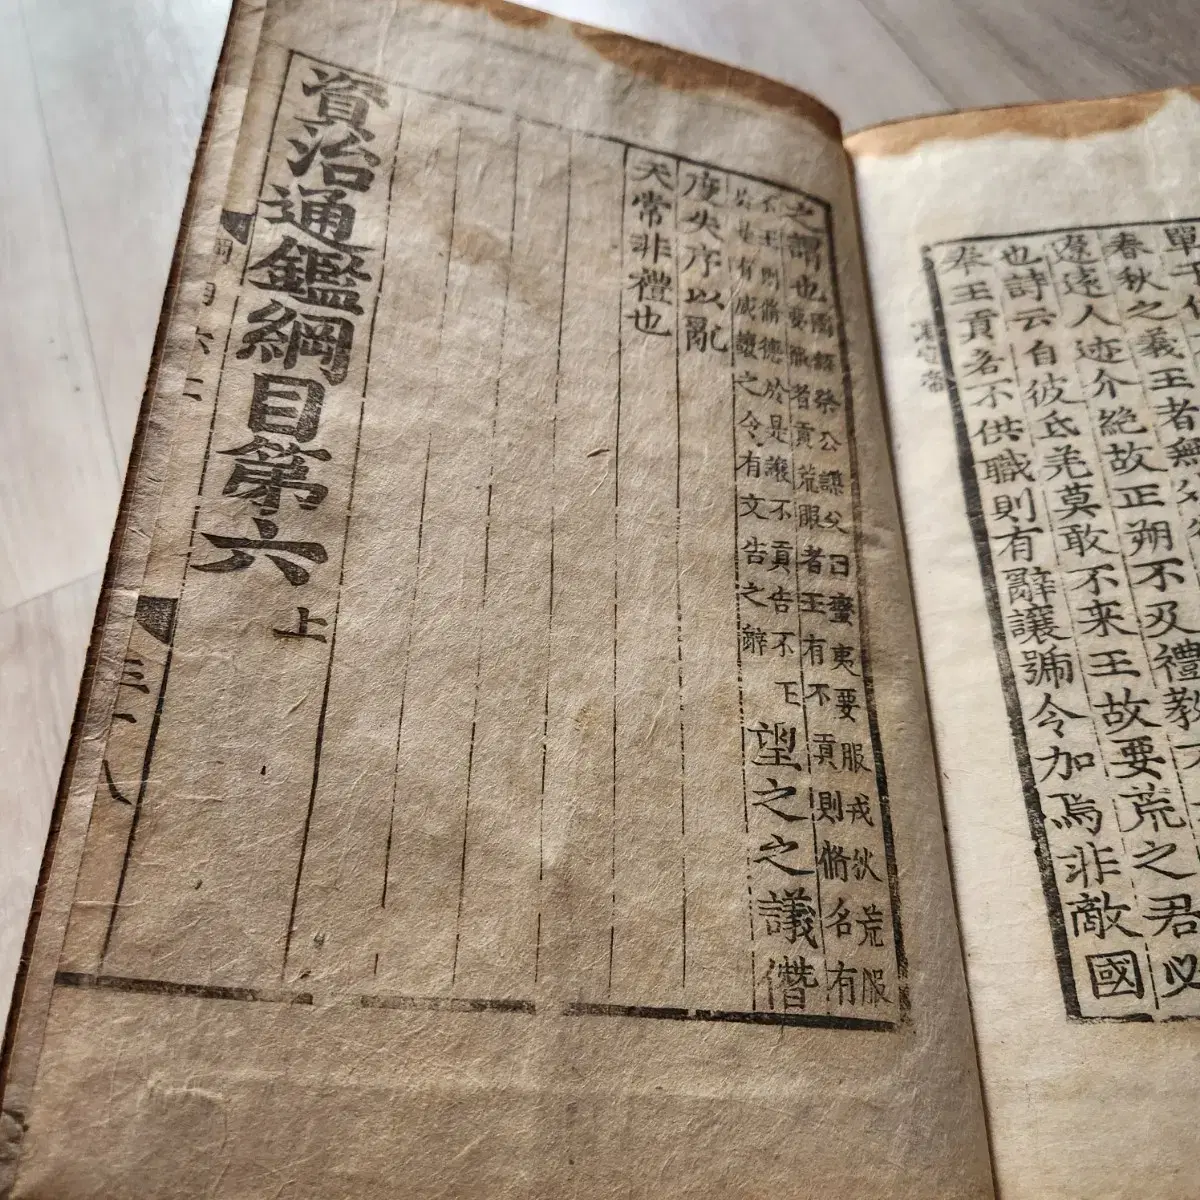 單于
春秋之義王者無
遼遠人迹介絶故正朔不及禮教不
也詩云自彼氐羌莫敢不来王故要荒之君必
奉王貢若不供職則有辭讓號令加焉非敵國
宣帝
之謂也
國語祭公謀父曰蠻夷要服戎狄荒服
要服者貢荒服者王有不貢則脩名有
不王則脩德於是讓不貢告不王
於是有威讓之令有文告之辭
望之之議僭
度失序以亂
天常非禮也
資治通鑑綱目第六上
三十八